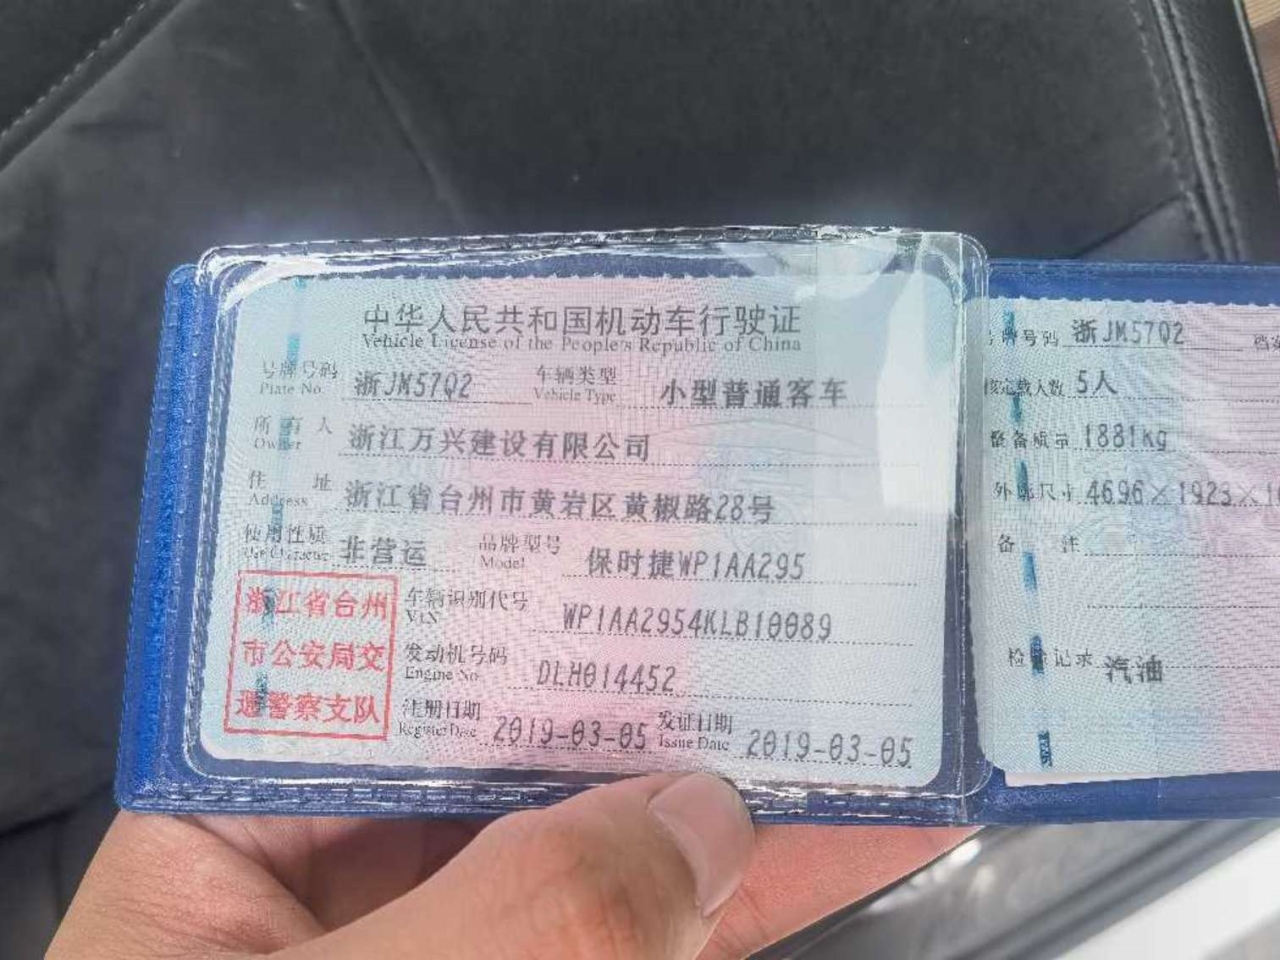 中华人民共和国机动车行驶证
Vehicle License of the People's Republic of China
号牌号码 浙JM57Q2 车辆类型 小型普通客车
Plate No. Vehicle Type
所有人 浙江万兴建设有限公司
Owner
住址 浙江省台州市黄岩区黄椒路28号
Address
使用性质 非营运 品牌型号 保时捷WP1AA295
Use Character Model
浙江省台州
市公安局交
通警察支队
车辆识别代号 WP1AA2954KLB10089
VIN
发动机号码 DLH014452
Engine No.
注册日期 2019-03-05 发证日期 2019-03-05
Register Date Issue Date
号牌号码 浙JM57Q2
核定载人数 5人
整备质量 1881kg
外廓尺寸 4696×1923×1
备注
检验记录 汽油